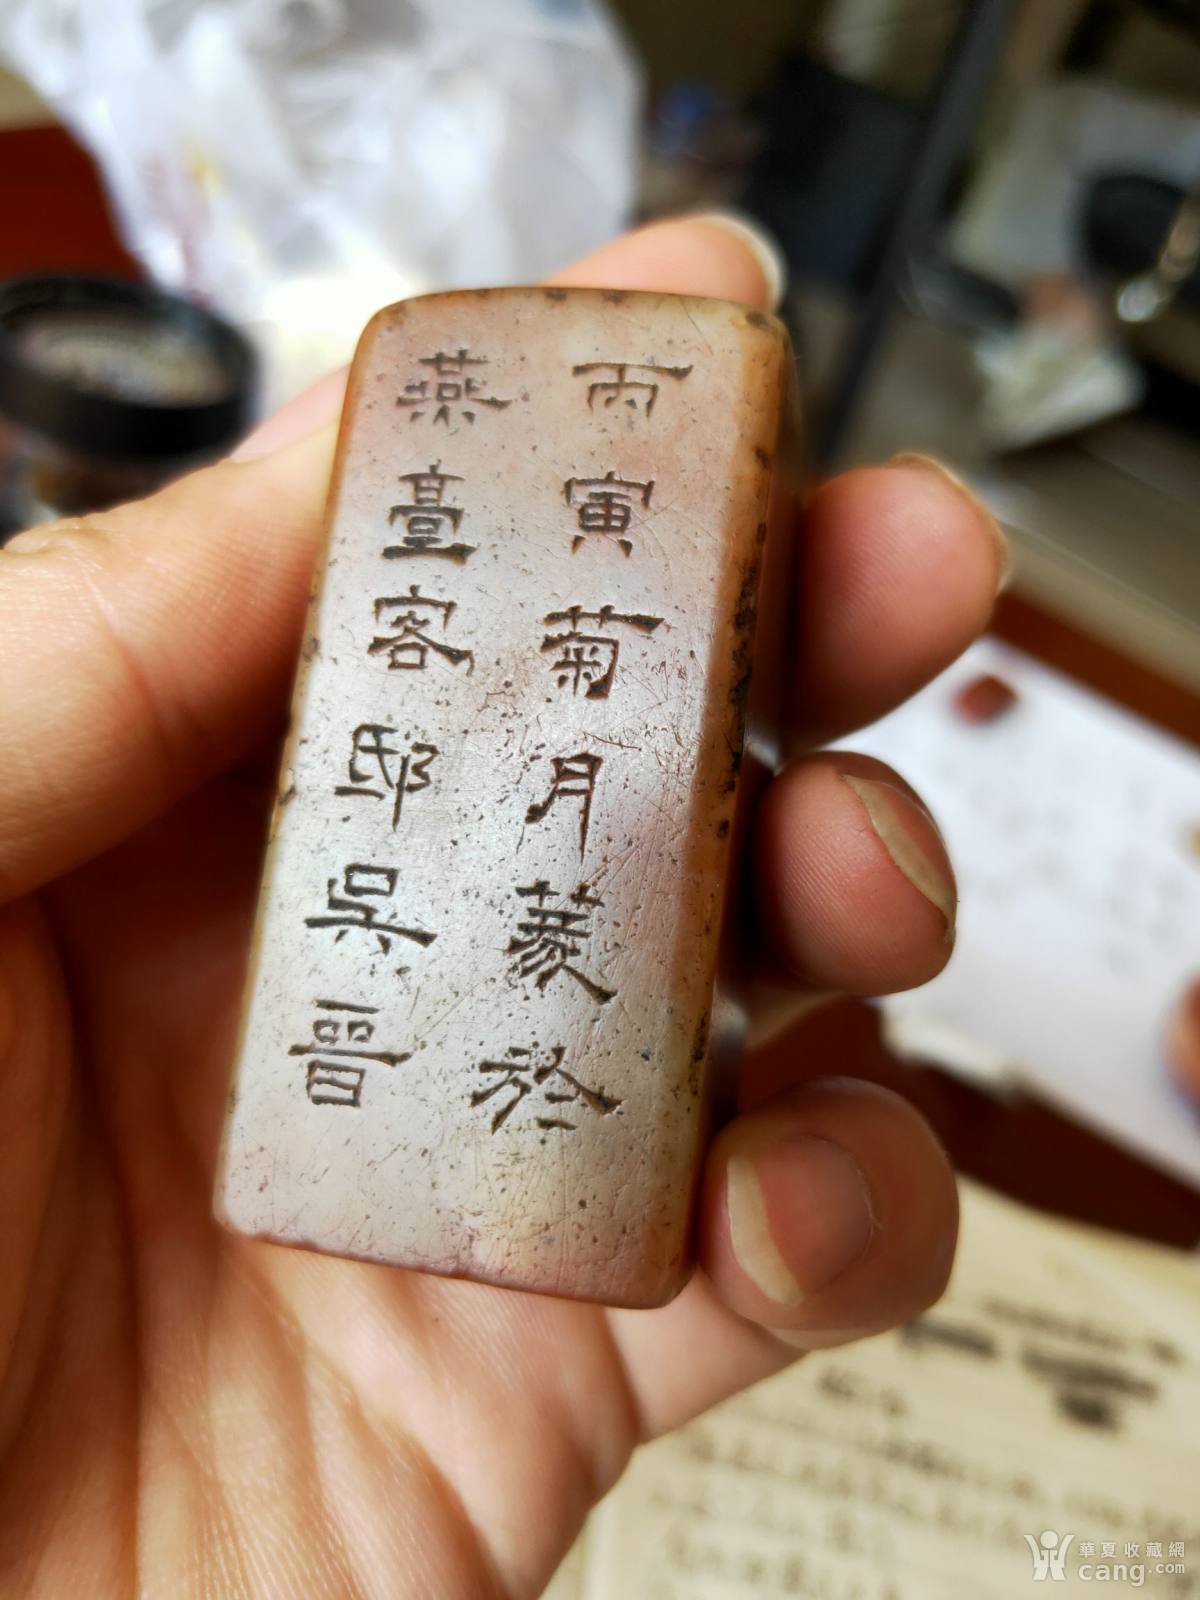 丙寅菊月蒦於
燕臺客邸吳晉
華夏收藏網
cang.com